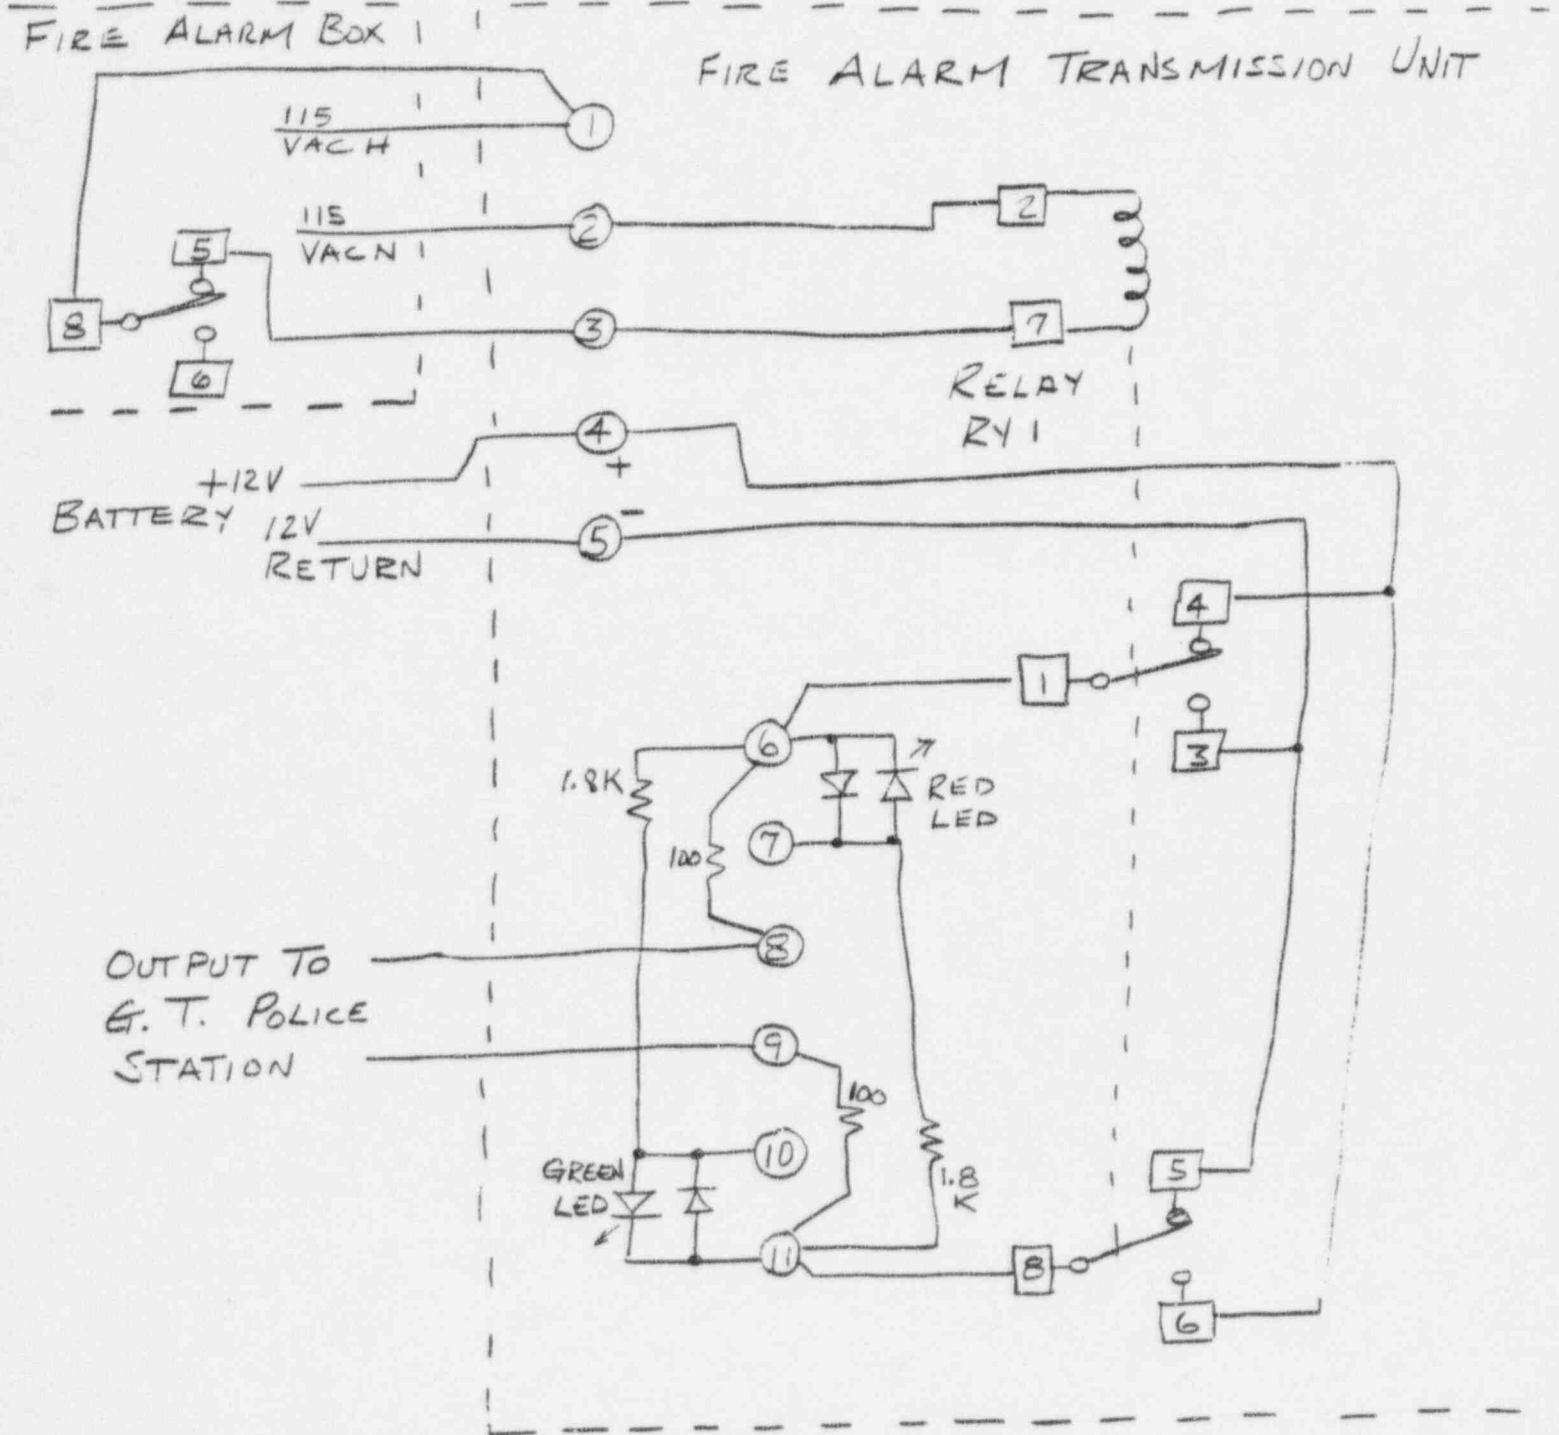 FIRE ALARM BOX
FIRE ALARM TRANSMISSION UNIT
115
VAC H
1
115
VAC N
2
2
5
8
3
7
6
RELAY
RY 1
4
+
+12V
BATTERY
12V
RETURN
5
-
4
1
3
6
1.8K
RED
LED
7
100
8
OUTPUT TO
G. T. POLICE
STATION
9
100
10
GREEN
LED
1.8
K
5
11
8
6